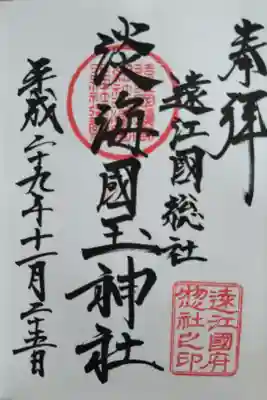 奉拝
遠江國総社
淡海國玉神社
平成二十九年十一月二十五日
遠江國府
惣社之印